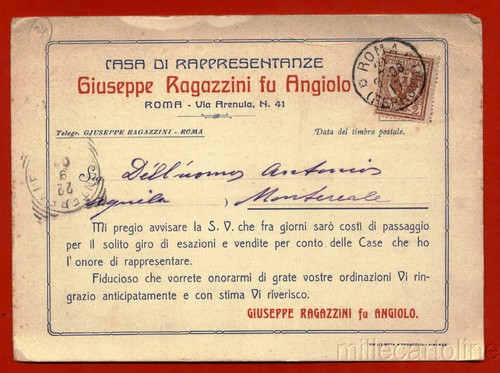 CASA DI RAPPRESENTANZE
Giuseppe Ragazzini fu Angiolo
ROMA - Via Arenula, N. 41
Telegr. GIUSEPPE RAGAZZINI - ROMA
Data del timbro postale.
ROMA
Sig. Dell'uomo Antonio
Aquila ) Montereale
Mi pregio avvisare la S. V. che fra giorni sarò costì di passaggio
per il solito giro di esazioni e vendite per conto delle Case che ho
l'onore di rappresentare.
Fiducioso che vorrete onorarmi di grate vostre ordinazioni Vi rin-
grazio anticipatamente e con stima Vi riverisco.
GIUSEPPE RAGAZZINI fu ANGIOLO.
millecartoline